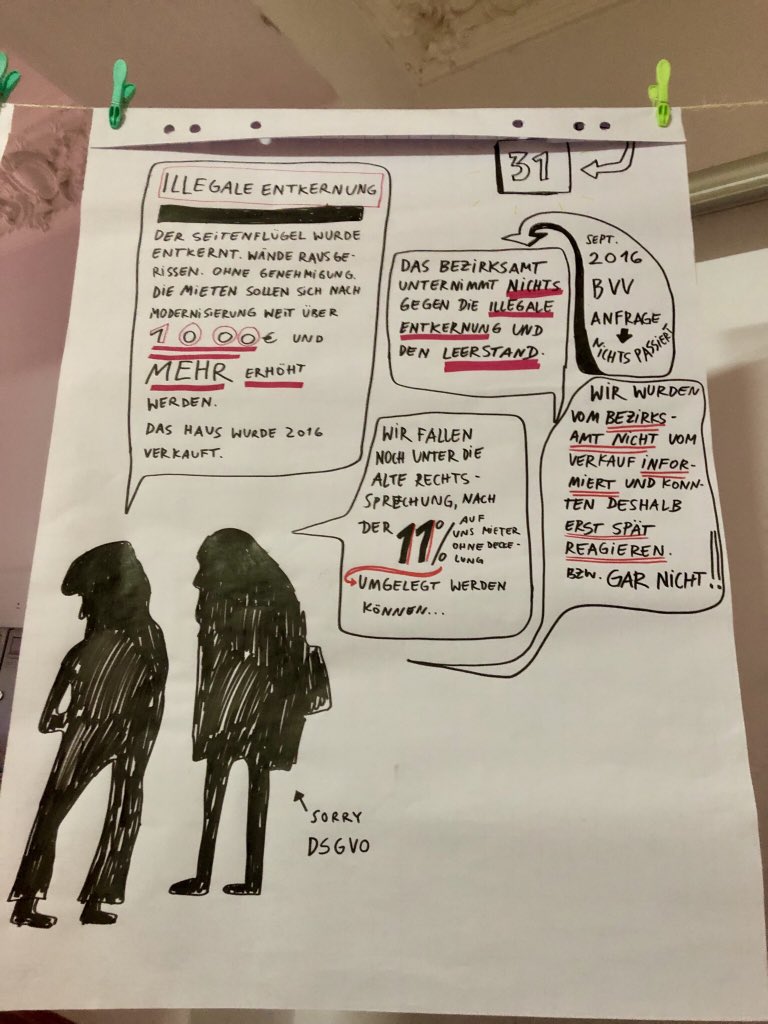 31
ILLEGALE ENTKERNUNG
DER SEITENFLÜGEL WURDE
ENTKERNT. WÄNDE RAUSGE-
RISSEN. OHNE GENEHMIGUNG.
DIE MIETEN SOLLEN SICH NACH
MODERNISIERUNG WEIT ÜBER
1000€ UND
MEHR ERHÖHT
WERDEN.
DAS HAUS WURDE 2016
VERKAUFT.
SEPT.
2016
BVV
ANFRAGE
NICHTS PASSIERT
DAS BEZIRKSAMT
UNTERNIMMT NICHTS
GEGEN DIE ILLEGALE
ENTKERNUNG UND
DEN LEERSTAND.
WIR WURDEN
VOM BEZIRKS-
AMT NICHT VOM
VERKAUF INFOR-
MIERT UND KONN-
TEN DESHALB
ERST SPÄT
REAGIEREN.
BZW. GAR NICHT!!
WIR FALLEN
NOCH UNTER DIE
ALTE RECHTS-
SPRECHUNG, NACH
DER 11% AUF
UNS MIETER
OHNE DECKE-
LUNG
UMGELEGT WERDEN
KÖNNEN...
SORRY
DSGVO